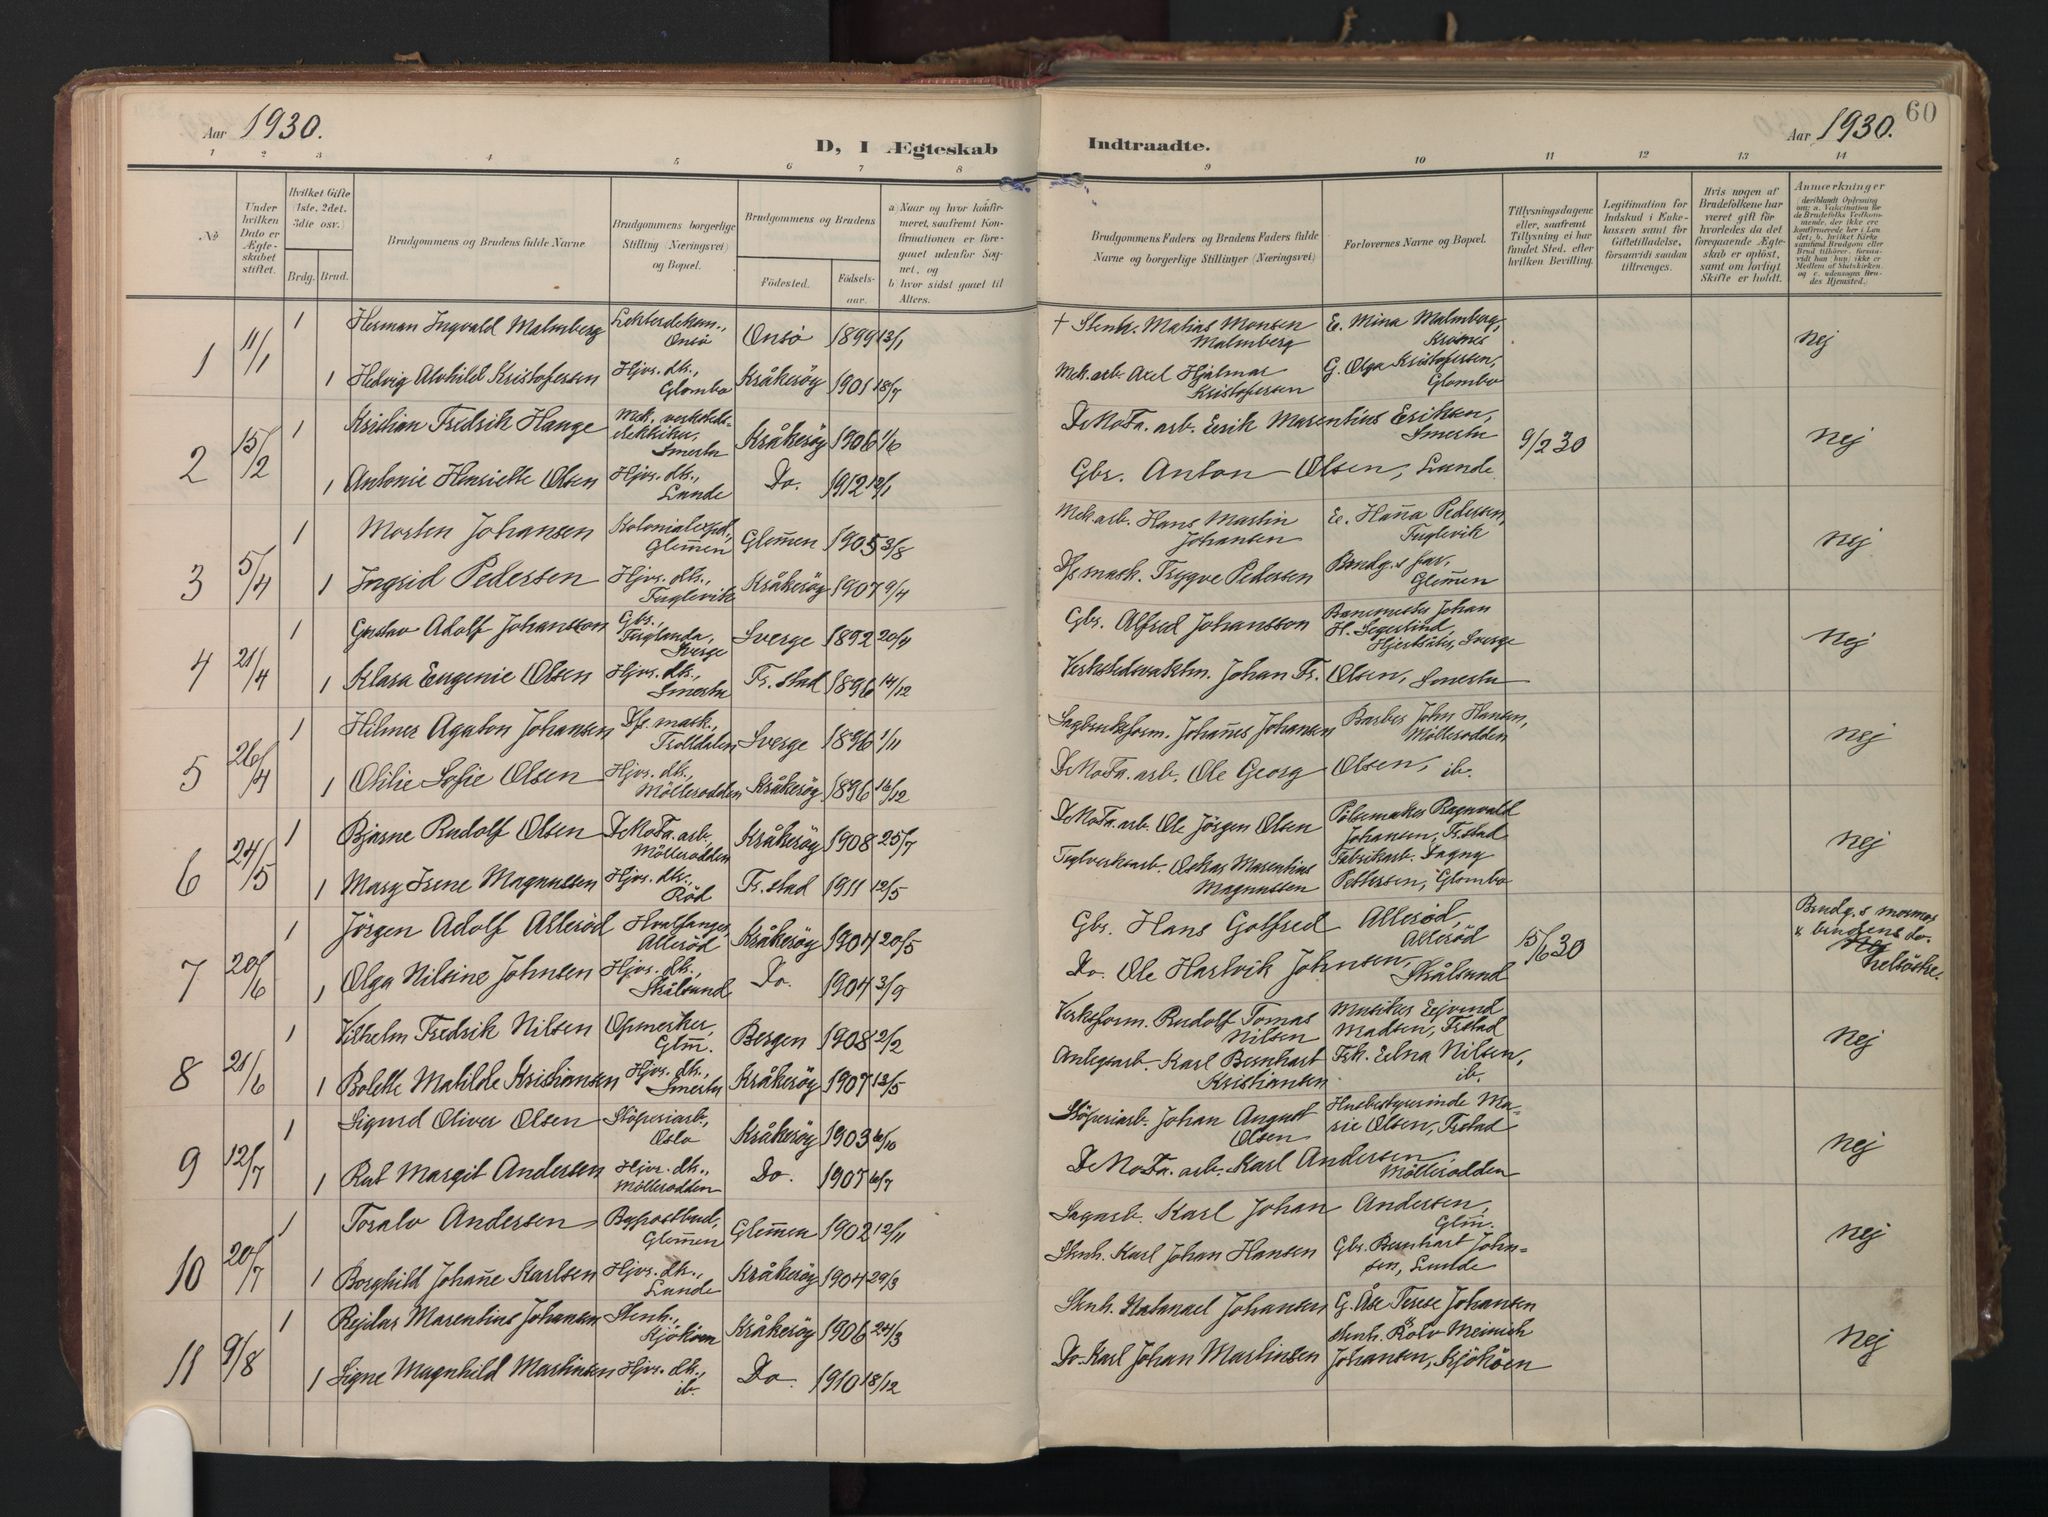 Aar 1930.
D, I Ægteskab
Indtraadte.
Aar 1930.
60
1 2 3 4 5 6 7 8 9 10 11 12 13 14
No
Under
hvilken
Dato er
Ægte-
skabet
stiftet.
Hvilket Gifte
(1ste, 2det,
3die osv.)
Brdg. Brud.
Brudgommens og Brudens fulde Navne.
Brudgommens borgerlige
Stilling (Næringsvei)
og Bopæl.
Brudgommens og Brudens
Fødested.
Fødsels-
aar.
a) Naar og hvor konfir-
meret, saafremt Kon-
firmationen er fore-
gaaet udenfor Sog-
net, og
b) hvor sidst gaaet til
Alters.
Brudgommens Faders og Brudens Faders fulde
Navne og borgerlige Stillinger (Næringsvei)
Forlovernes Navne og Bopæl.
Tillysningsdagene
eller, saafremt
Tillysning ei har
fundet Sted, efter
hvilken Bevilling.
Legitimation for
Indskud i Enke-
kassen samt for
Giftetilladelse,
forsaavidt saadan
tiltrænges.
Hvis nogen af
Brudefolkene har
været gift før
hvorledes da det
foregaaende Ægte-
skab er opløst,
samt om lovligt
Skifte er holdt.
Anmærkninger
1 11/1 1 Herman Ingvald Malmberg
Onsö Onsö 1899 13/1
† Stenh. Matias Monsen
Malmberg
E. Mina Malmberg,
nej
1 Hedvig Alvhild Kristofersen
Hjvs. dtr.,
Glombo
Kråkeröy 1901 18/7
Mek. arb. Axel Hjalmar
Kristofersen
G. Olga Kristofersen,
Glombo
2 15/2 1 Kristian Fredrik Hauge
Smertu
Kråkeröy 1906 1/6
DeNoFa. arb. Erik Marentius Eriksen,
Smertu
9/2 30
nej
1 Antonie Henriette Olsen
Hjvs. dtr.,
Lunde
Do. 1912 12/1
Gbr. Anton Olsen, Lunde
3 5/4 1 Morten Johansen
Kolonialexpd.,
Glem̄en
Glem̄en 1905 3/8
Mek. arb. Hans Martin
Johansen
E. Han̄a Pedersen,
Fuglevik
nej
1 Ingrid Pedersen
Hjvs. dtr.,
Fuglevik
Kråkeröy 1907 9/4
D/s mask. Trygve Pedersen
Brudg.s far,
Glem̄en
4 21/4 1 Gustav Adolf Johansson
Gbr.,
Sverge
Sverge 1892 20/4
Gbr. Alfred Johansson
Banemester Johan
nej
1 Klara Eugenie Olsen
Hjvs. dtr.,
Smertu
Fr.stad 1896 14/12
Johan Fr. Olsen, Smertu
5 26/4 1 Hilmer Agaton Johansen
D/s. mask.,
Trolldalen
Sverge 1896 1/11
Sagbruksform. Johan̄es Johansen
Barber John Hansen,
Möllerodden
nej
1 Otilie Sofie Olsen
Hjvs. dtr.,
Möllerodden
Kråkeröy 1896 16/12
DeNoFa. arb. Ole Georg Olsen, ib.
6 24/5 1 Bjarne Rudolf Olsen
DeNoFa. arb,
Möllerodden
Kråkeröy 1908 25/7
DeNoFa. arb. Ole Jörgen Olsen
Pölsemaker Ragnvald
Johansen, Fr.stad
nej
1 Mary Irene Magnussen
Hjvs. dtr.,
Röd
Fr.stad 1911 12/5
Teglverksarb. Oskar Marentius
Magnussen
Fabrikarb. Dagny
Pettersen, Glombo
7 20/6 1 Jörgen Adolf Alleröd
Hvalfanger,
Alleröd
Kråkeröy 1904 20/5
Gbr. Hans Gotfred Alleröd,
Alleröd
15/6 30
Brudg.s mormor
& brudens do.
nej
1 Olga Nilsine Johnsen
Hjvs. dtr.,
Stålsund
Do. 1904 3/9
Do. Ole Hartvik Johnsen,
Stålsund
8 21/6 1 Vilhelm Fredrik Nilsen
Opmerker,
Glm̄.
Bergen 1908 2/2
Verksform. Rudolf Tomas
Nilsen
Musiker Eyvind
Madsen, Fr.stad
nej
1 Bolette Matilde Kristiansen
Hjvs. dtr.,
Smertu
Kråkeröy 1907 13/5
Anlegsarb. Karl Bernhart
Kristiansen
Frk. Edna Nilsen,
ib.
9 12/7 1 Sigurd Oliver Olsen
Stöperiarb.,
Oslo
Kråkeröy 1903 6/10
Stöperiarb. Johan August
Olsen
Husbestyrerinde Ma-
rie Olsen, Fr.stad
nej
1 Rut Margit Andersen
Hjvs. dtr.,
Möllerodden
Do. 1907 6/7
DeNoFa. arb. Karl Andersen,
Möllerodden
10 20/7 1 Toralv Andersen
Bypostbud,
Glem̄en
Glem̄en 1902 12/11
Sagarb. Karl Johan Andersen,
Glm̄.
nej
1 Borghild Johan̄e Karlsen
Hjvs. dtr.,
Lunde
Kråkeröy 1904 29/3
Stenh. Karl Johan Hansen
Gbr. Bernhart John-
sen, Lunde
11 9/8 1 Rejdar Marentius Johansen
Stenh.,
Kjököen
Kråkeröy 1906 24/3
Stenh. Natanael Johansen
G. Åse Terese Johansen
nej
1 Signe Magnhild Martinsen
Hjvs. dtr.,
ib.
Do. 1910 18/12
Do. Karl Johan Martinsen
Stenh. Rolv Meinich
Johansen, Kjököen